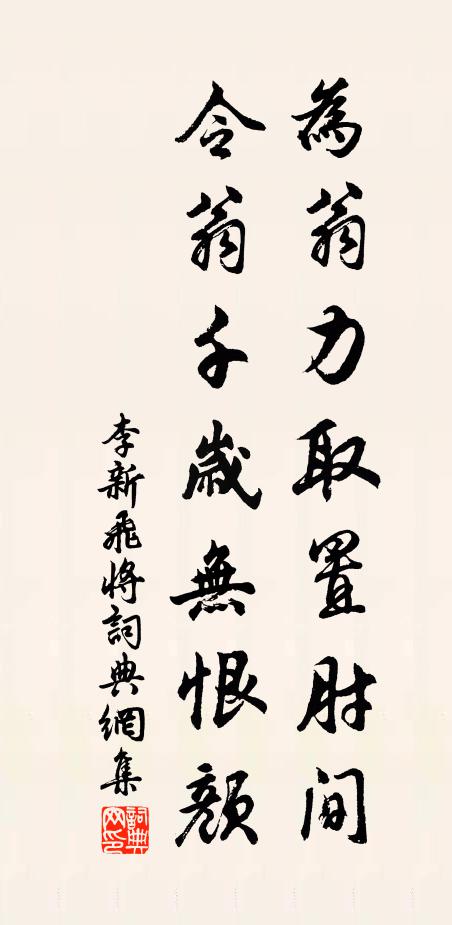 為翁力取置肘間
令翁千歲無恨顏
李新飛將詞典網集
詞典網印